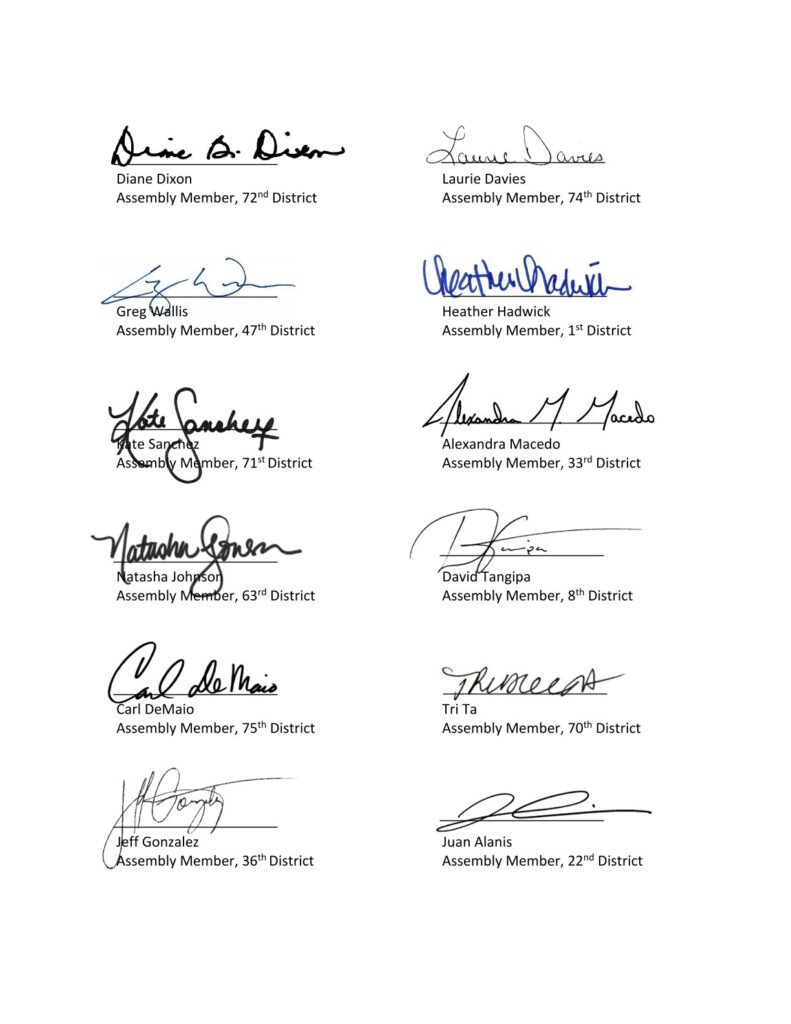 Diane B. Dixon
Diane Dixon
Assembly Member, 72nd District
Laurie Davies
Laurie Davies
Assembly Member, 74th District
Greg Wallis
Assembly Member, 47th District
Heather Hadwick
Heather Hadwick
Assembly Member, 1st District
Kate Sanchez
Kate Sanchez
Assembly Member, 71st District
Alexandra M. Macedo
Alexandra Macedo
Assembly Member, 33rd District
Natasha Johnson
Natasha Johnson
Assembly Member, 63rd District
David Tangipa
Assembly Member, 8th District
Carl DeMaio
Carl DeMaio
Assembly Member, 75th District
Tri Ta
Assembly Member, 70th District
Jeff Gonzalez
Assembly Member, 36th District
Juan Alanis
Assembly Member, 22nd District